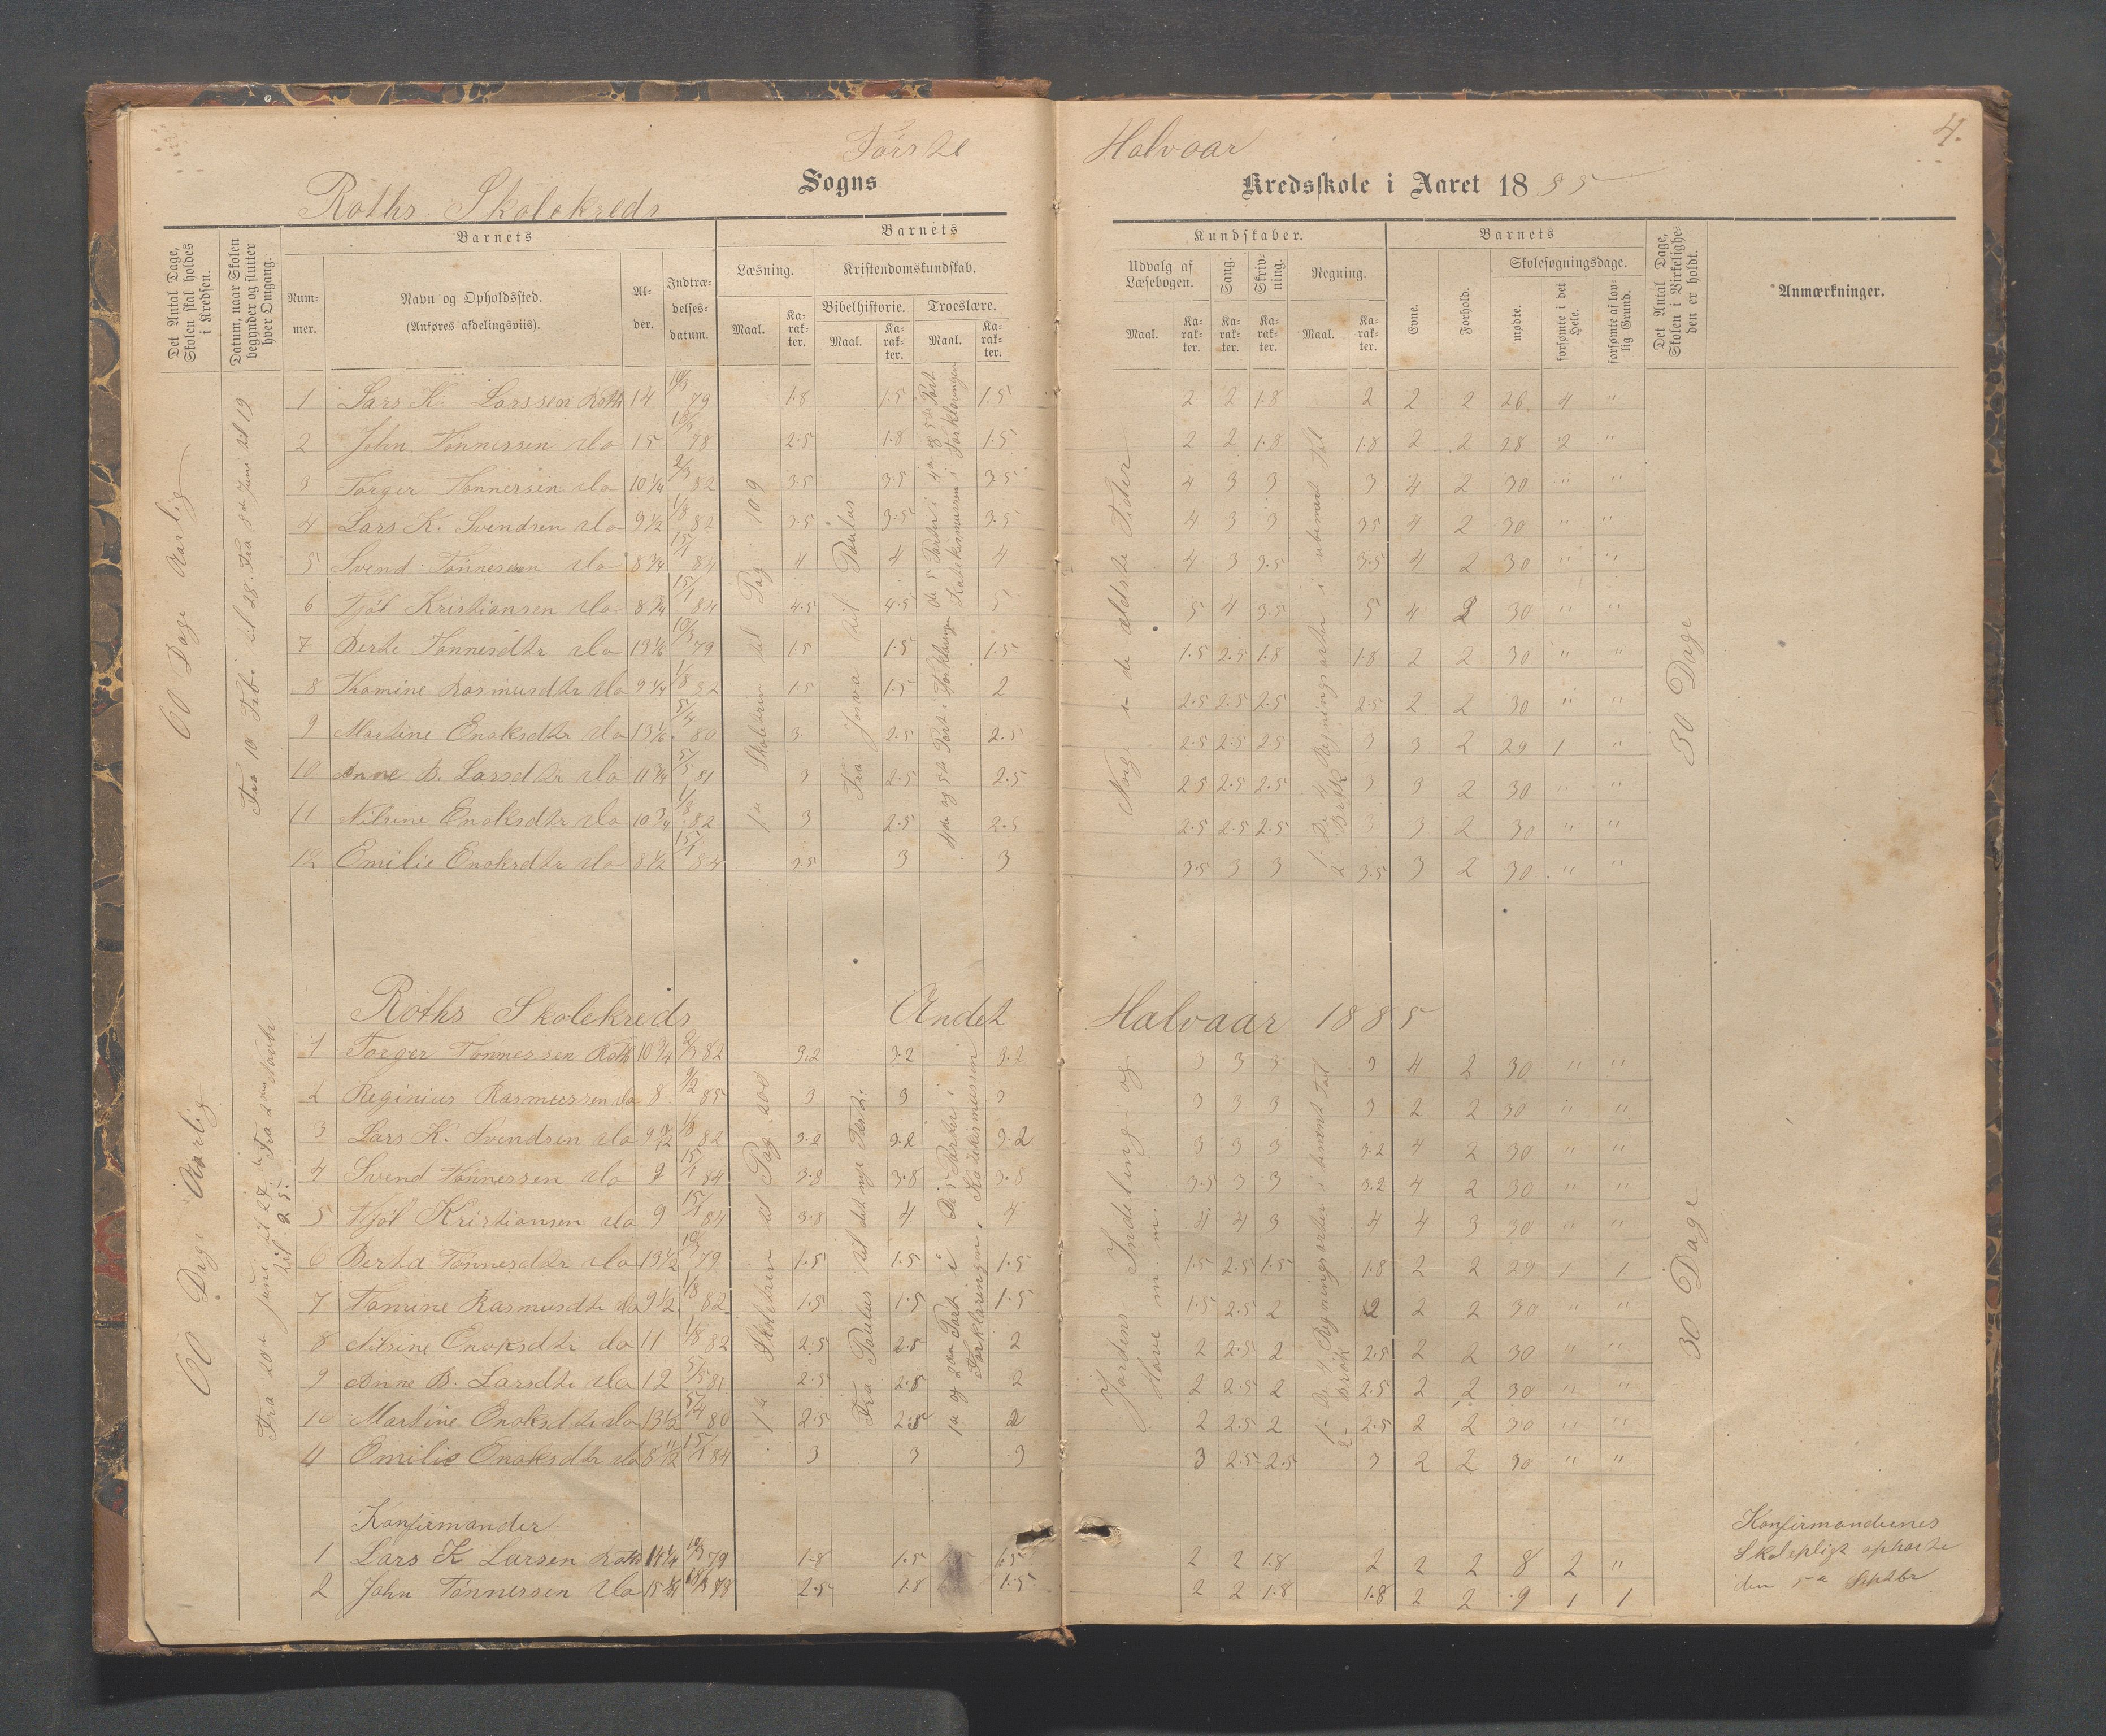 Første Halvaar 4.
Roths Skolekreds Sogns Kredsskole i Aaret 1885
Det Antal Dage, Skolen skal holdes i Kredsen.
Datum, naar Skolen begynder og slutter hver Omgang.
Barnets
Nummer.
Navn og Opholdssted.
(Anføres afdelingsviis).
Alder.
Indtrædelsesdatum.
Barnets
Læsning.
Maal.
Karakter.
Kristendomskundskab.
Bibelhistorie.
Maal.
Karakter.
Troeslære.
Maal.
Karakter.
Kundskaber.
Udvalg af Læsebogen.
Maal.
Karakter.
Sang.
Karakter.
Skrivning.
Karakter.
Regning.
Maal.
Karakter.
Barnets
Evne.
Forhold.
Skolesøgningsdage.
mødte.
forsømte i det Hele.
forsømte af lovlig Grund.
Det Antal Dage, Skolen i Virkeligheden er holdt.
Anmærkninger.
60 Dage Aarlig
Fra 10 Feb. til 28. Fra 8de Juni til 19
1 Lars K. Larssen Roth 14 10/3 79 1.8 1.5 1.5 2 2 1.8 2 2 2 26 4 "
2 John Tønnessen do 15 18/3 78 2.5 1.8 1.5 2 2 1.8 1.8 2 2 28 2 "
3 Torger Tønnessen do 10 1/4 2/3 82 3.5 3.5 3.5 4 3 3 3 4 2 30 " "
4 Lars K. Svendsen do 9 1/2 1/8 82 3.5 3.5 3.5 4 3 3 3.5 4 2 30 " "
5 Svend Tønnessen do 8 3/4 15/1 84 4 4 4 4 3 3.5 3.5 4 2 30 " "
6 Tjøl Kristiansen do 8 3/4 15/1 84 4.5 4.5 5 5 4 3.5 5 4 2 30 " "
7 Berte Tønnesdtr do 13 1/6 10/3 79 1.5 1.5 1.5 1.5 2.5 1.8 1.8 2 2 30 " "
8 Thomine Rasmusdtr do 9 1/4 1/8 82 1.5 1.5 2 2.5 2.5 2.5 2.5 2 2 30 " "
9 Martine Enoksdtr do 13 1/6 5/4 80 3 2.5 2.5 2.5 2.5 2.5 3 3 2 29 1 "
10 Anne B. Larsdtr do 11 3/4 5/5 81 3 2.5 2.5 2.5 2.5 2.5 3 3 2 30 " "
11 Nilsine Enoksdtr do 10 3/4 1/8 82 3 2.5 2.5 2.5 2.5 2.5 3 3 2 30 " "
12 Emilie Enoksdtr do 8 1/2 15/1 84 3.5 3 3 3.5 3 3 3.5 3 2 30 " "
1ste Skoletrin til Pag 109
Fra Josva til Paulus
4de og 5te Part i Forklaringen
de 5 Parter i Katekismussen
Norge i de ældste Tider
1. De 4 Regningsarter i ubenævnt Tal
2 Brøk
30 Dage
Roths Skolekreds Andet Halvaar 1885
60 Dage Aarlig
Fra 20de Juni til 27de Fra 2den Novbr til 25.
1 Torger Tønnessen Roth 10 3/4 2/3 82 3.2 3.2 3.2 3 3 3 3 4 2 30 " "
2 Reginius Rasmussen do 8 9/2 85 3 3 3 3 3 3 3 2 2 30 " "
3 Lars K. Svendsen do 9 11/12 1/8 82 3.2 3.2 3.2 3 3 3 3.2 4 2 30 " "
4 Svend Tønnessen do 9 15/1 84 3.8 3.8 3.8 3.5 3 3 3.2 4 2 30 " "
5 Tjøl Kristiansen do 9 15/1 84 3.8 4 4 4 4 3 4 4 3 30 " "
6 Berta Tønnesdtr do 13 1/2 10/3 79 1.5 1.5 1.5 1.5 2.5 1.5 1.8 2 2 29 1 1
7 Tomine Rasmusdtr do 9 1/2 1/8 82 1.5 1.5 1.5 1.5 2.5 2 2 2 2 30 " "
8 Nilsine Enoksdtr do 11 1/8 82 2.5 2.5 2 2 2.5 2 2.5 2 2 30 " "
9 Anne B. Larsdtr do 12 5/5 81 2.5 2.8 2 2 2.5 2 2.5 2 2 30 " "
10 Martine Enoksdtr do 13 1/2 5/4 80 2.5 2.5 2 2 2.5 2 2.5 2 2 30 " "
11 Emilie Enoksdtr do 8 11/12 15/1 84 3 3 3 3 2.5 2.5 3 2 2 30 " "
1ste Skoletrin til Pag 200
Fra Paulus til det nye Testi.
1ste og 2den Part i Forklaringen,
De 5 Parter i Katekismussen
Jordens Inddeling og Have m. m.
1. De 4 Regningsarter i benævnt Tal
2. Brøk
30 Dage
Konfirmander
1 Lars K Larsen Roth 14 1/4 10/3 79 1.8 1.5 1.5 2 2 1.8 2 2 2 8 2 "
2 John Tønnessen do 15 1/4 18/3 78 2.5 1.8 1.5 2 2 1.8 1.8 2 2 9 1 1
Konfirmandernes
Skolepligt ophørte
den 5te Septbr